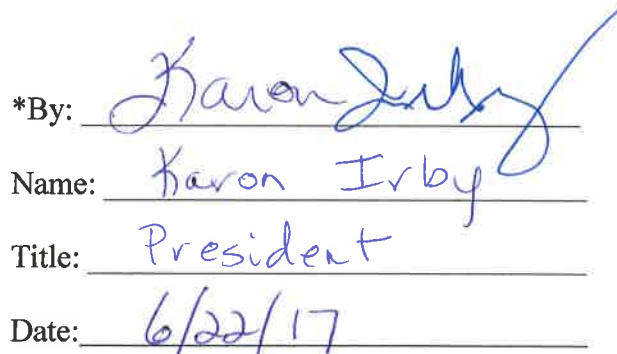 *By: Karon Irby
Name: Karon Irby
Title: President
Date: 6/22/17